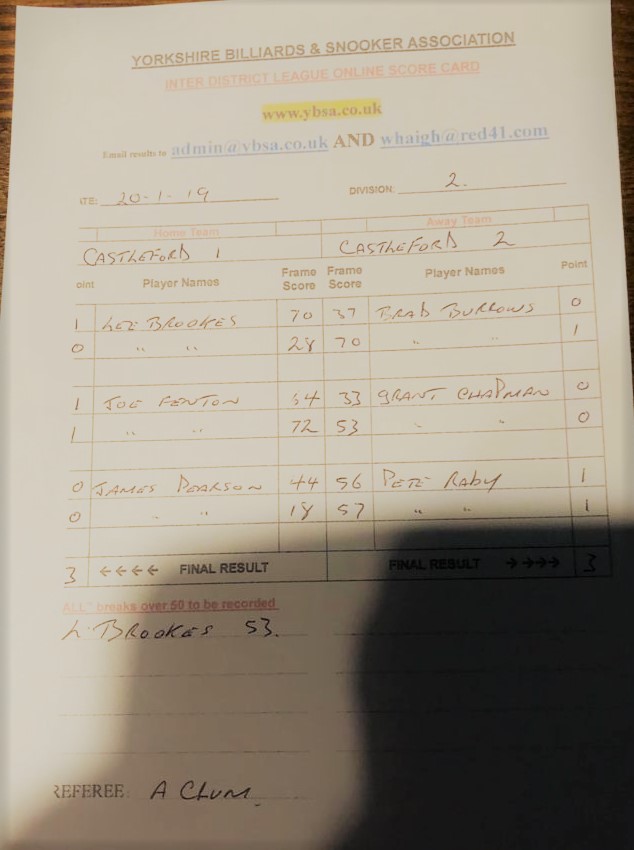 YORKSHIRE BILLIARDS & SNOOKER ASSOCIATION
INTER DISTRICT LEAGUE ONLINE SCORE CARD
www.ybsa.co.uk
Email results to admin@ybsa.co.uk AND whaigh@red41.com
ATE: 20-1-19 DIVISION: 2.
Home Team Away Team
CASTLEFORD 1 CASTLEFORD 2
oint Player Names Frame Score Frame Score Player Names Point
1 LEE BROOKES 70 37 BRAD BURROWS 0
0 " " 28 70 " " 1
1 JOE FENTON 54 33 GRANT CHAPMAN 0
1 " " 72 53 " " 0
0 JAMES PEARSON 44 56 PETE RABY 1
0 " " 18 57 " " 1
3 ←←←← FINAL RESULT FINAL RESULT →→→→ 3
ALL" breaks over 50 to be recorded
L. BROOKES 53.
REFEREE: A CLUM